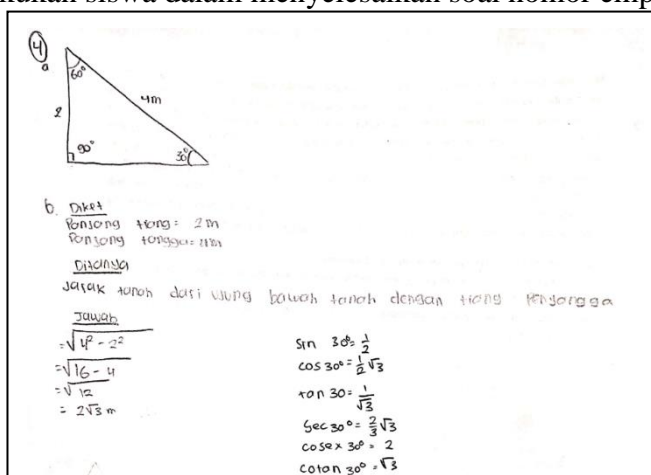 nukan siswa dalam menyelesaikan soal nomor emp
4
a
60°
4m
2
90°
30°
b. Diket
Panjang tiang = 2 m
Panjang tangga = 4m
Ditanya
Jarak tanah dari ujung bawah tanah dengan tiang penyangga
Jawab
= √4² - 2²
= √16 - 4
= √12
= 2√3 m
sin 30° = 1/2
cos 30° = 1/2 √3
tan 30 = 1/√3
sec 30° = 2/3 √3
cosex 30° = 2
cotan 30° = √3